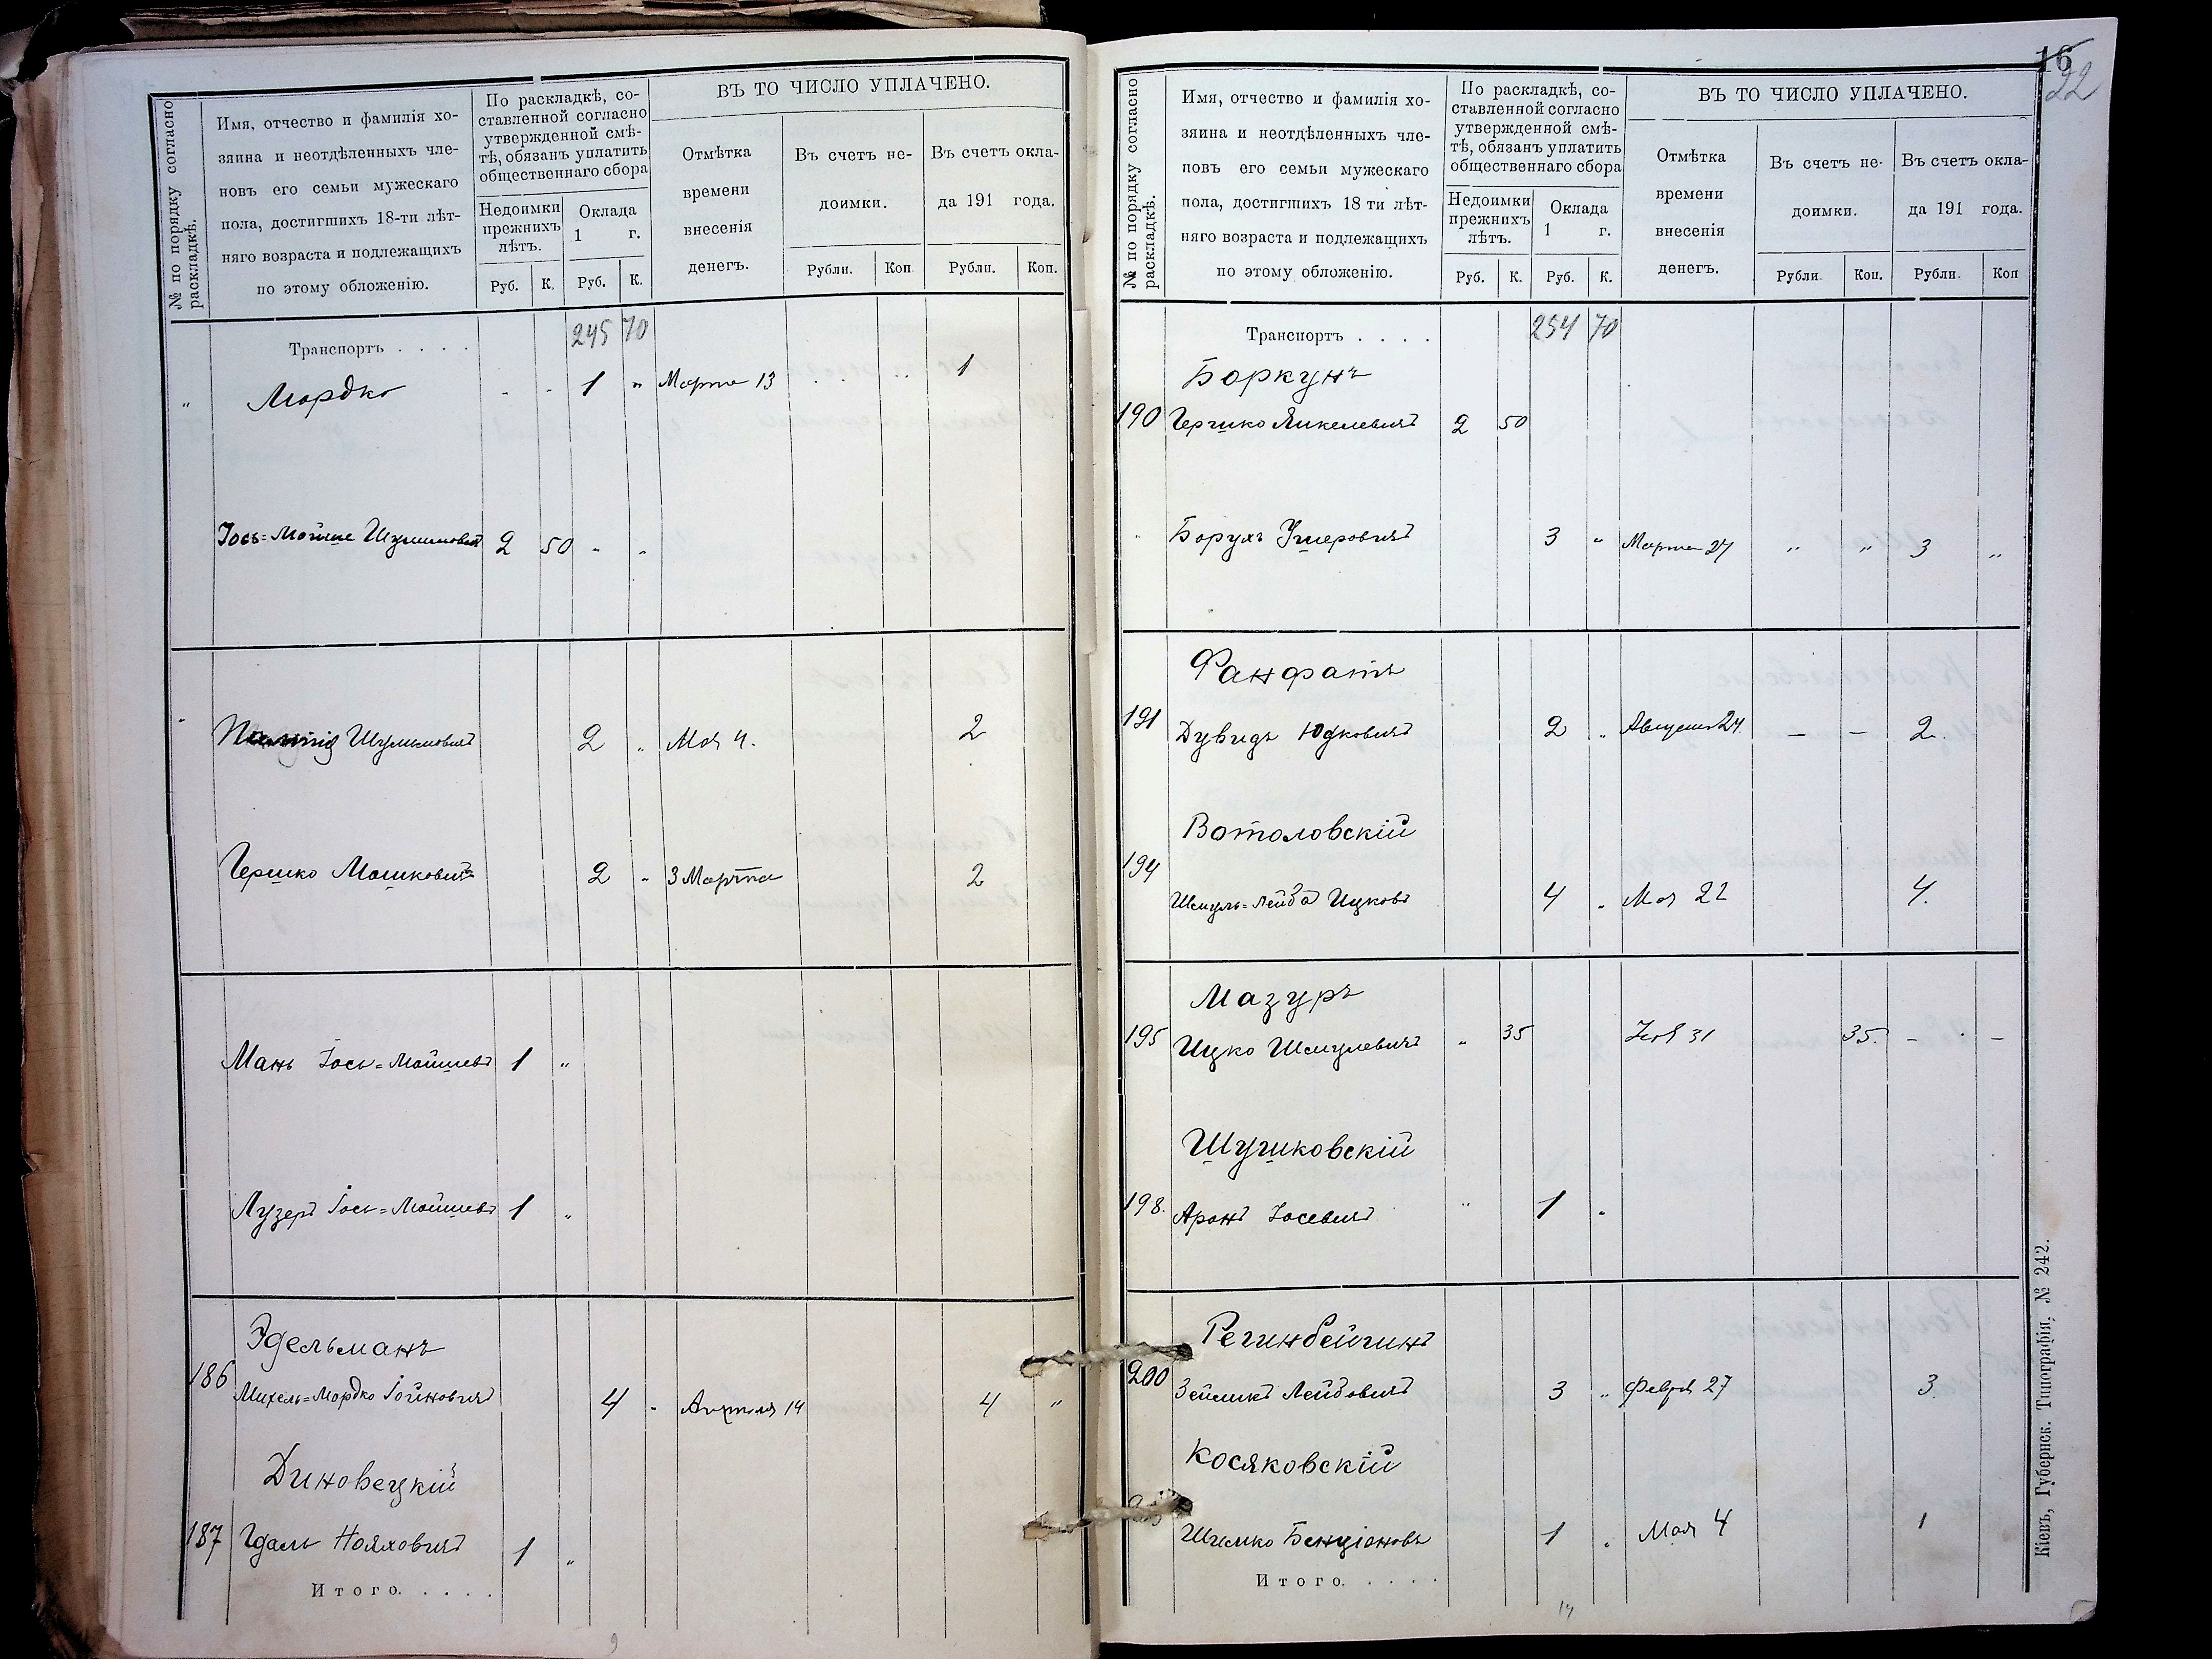 № по порядку согласно раскладкѣ.
Имя, отчество и фамилія хо-
зяина и неотдѣленныхъ чле-
новъ его семьи мужескаго
пола, достигшихъ 18-ти лѣт-
няго возраста и подлежащихъ
по этому обложенію.
По раскладкѣ, со-
ставленной согласно
утвержденной смѣ-
тѣ, обязанъ уплатить
общественнаго сбора
Недоимки
прежнихъ
лѣтъ.
Оклада
1 г.
Руб. К. Руб. К.
ВЪ ТО ЧИСЛО УПЛАЧЕНО.
Отмѣтка
времени
внесенія
денегъ.
Въ счетъ не-
доимки.
Въ счетъ окла-
да 191 года.
Рубли. Коп Рубли. Коп.
Транспортъ . . . . 245 70
" Мордко - - 1 " Марта 13 1
Іось=Мойше Шулимовъ 2 50 " "
Шулимовичъ 2 " Мая 4. 2
Гершко Мошковичъ 2 " 3 Марта 2
Мань Іось=Мойшевъ 1 "
Лузеръ Іось=Мойшевъ 1 "
Эдельманъ
186 Михель=Мордко Іойновичъ 4 " Апреля 14 4 "
Диновецкій
187 Гдаль Нояховичъ 1 "
Итого. . . . .
9
16
22
№ по порядку согласно раскладкѣ.
Имя, отчество и фамилія хо-
зяина и неотдѣленныхъ чле-
новъ его семьи мужескаго
пола, достигшихъ 18 ти лѣт-
няго возраста и подлежащихъ
по этому обложенію.
По раскладкѣ, со-
ставленной согласно
утвержденной смѣ-
тѣ, обязанъ уплатить
общественнаго сбора
Недоимки
прежнихъ
лѣтъ.
Оклада
1 г.
Руб. К. Руб. К.
ВЪ ТО ЧИСЛО УПЛАЧЕНО.
Отмѣтка
времени
внесенія
денегъ.
Въ счетъ не-
доимки.
Въ счетъ окла-
да 191 года.
Рубли. Коп. Рубли. Коп
Транспортъ . . . . 254 70
Боркунъ
190 Гершко Янкелевичъ 2 50
Борухъ Умеровичъ 3 " Марта 27 " " 3 "
Фанфатъ
191 Дувидъ Юдковичъ 2 " Августа 24 — — 2.
Вотоловскій
194
Шмуль=Лейба Ицковъ 4 " Мая 22 4.
Мазуръ
195 Ицко Шмулевичъ " 35 31 35. - -
Шушковскій
198. Аронъ Іосевичъ " 1 "
Регинбейгинъ
200 Зейликъ Лейбовичъ 3 " Февр. 27 3.
Косяковскій
Шлемко Бенціоновъ 1 " Мая 4 1
Итого. . . . .
14
Кіевъ, Губернск. Типографія, № 242.